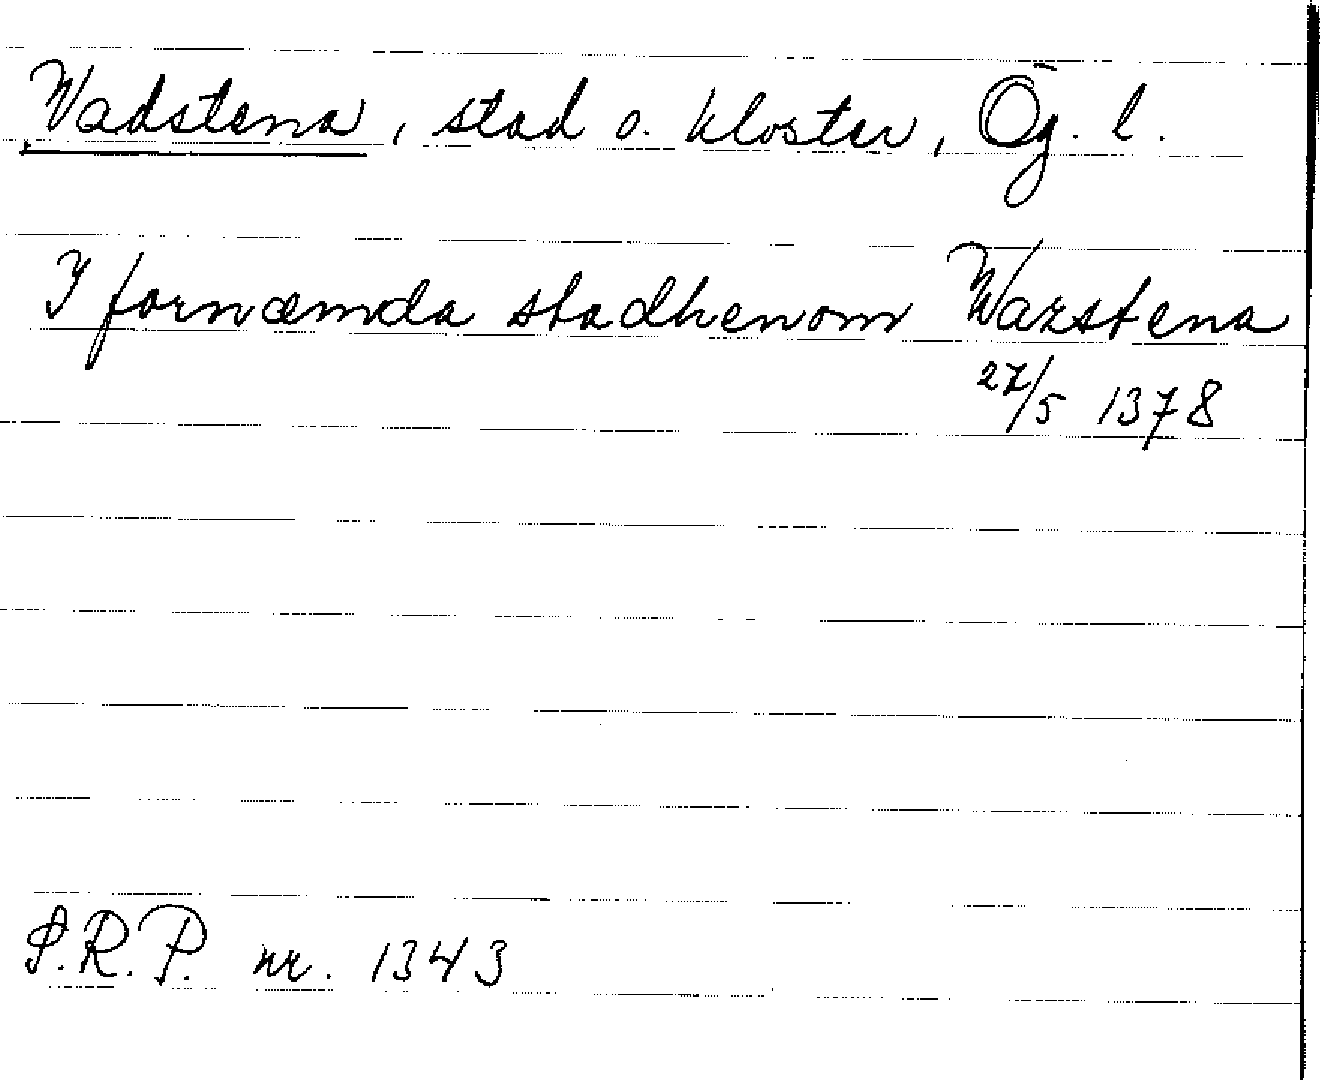 Wadstena, stad o. kloster, Ög. l.
I fornæmda stadhenom Wazstena
27/5 1378
S.R.P. nr. 1343